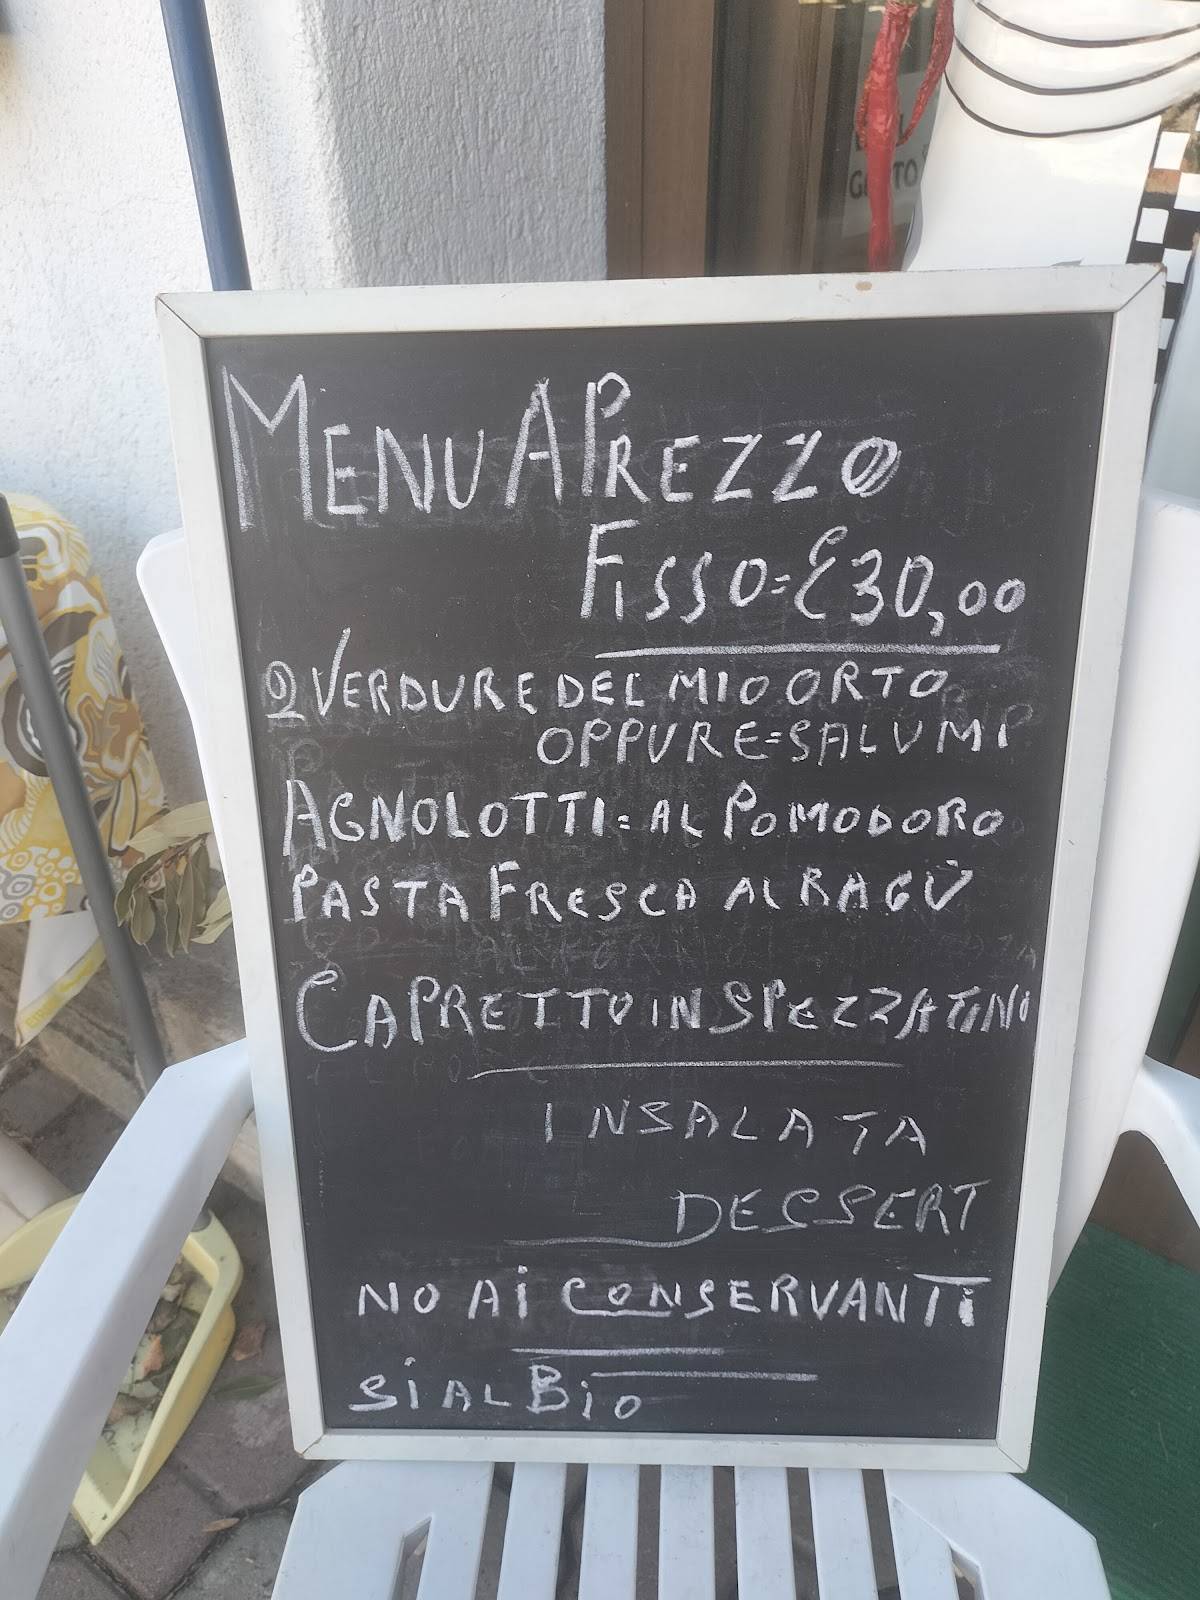 MENU A PREZZO
FISSO=€30,00
2 VERDURE DEL MIO ORTO
OPPURE=SALUMI
AGNOLOTTI=AL POMODORO
PASTA FRESCA AL RAGÙ
CAPRETTO IN SPEZZATINO
INSALATA
DESSERT
NO AI CONSERVANTI
SI AL BIO